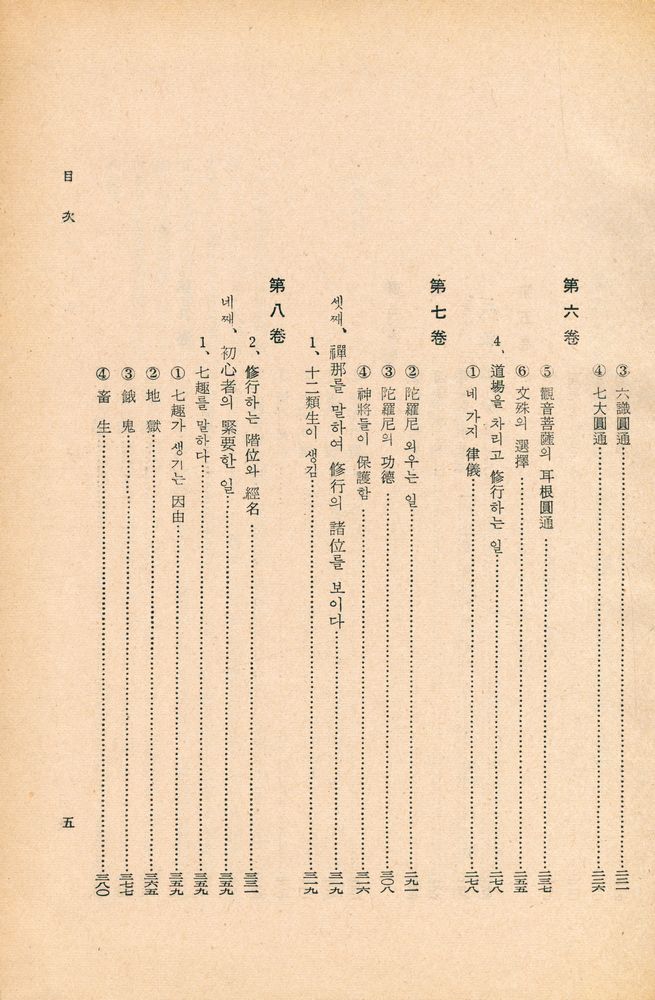 ③ 六識圓通……二二一
④ 七大圓通……二二六
第六卷
⑤ 觀音菩薩의 耳根圓通……二三七
⑥ 文殊의 選擇……二五五
4、道場을 차리고 修行하는 일……二七八
① 네 가지 律儀……二七八
第七卷
② 陀羅尼 외우는 일……二九一
③ 陀羅尼의 功德……三〇八
④ 神將들이 保護함……三一六
셋째、禪那를 말하여 修行의 諸位를 보이다……三一九
1、十二類生이 생김……三一九
第八卷
2、修行하는 階位와 經名……三三一
네째、初心者의 緊要한 일……三五九
1、七趣를 말하다……三五九
① 七趣가 생기는 因由……三五九
② 地獄……三六五
③ 餓鬼……三七七
④ 畜生……三八〇
目次
五